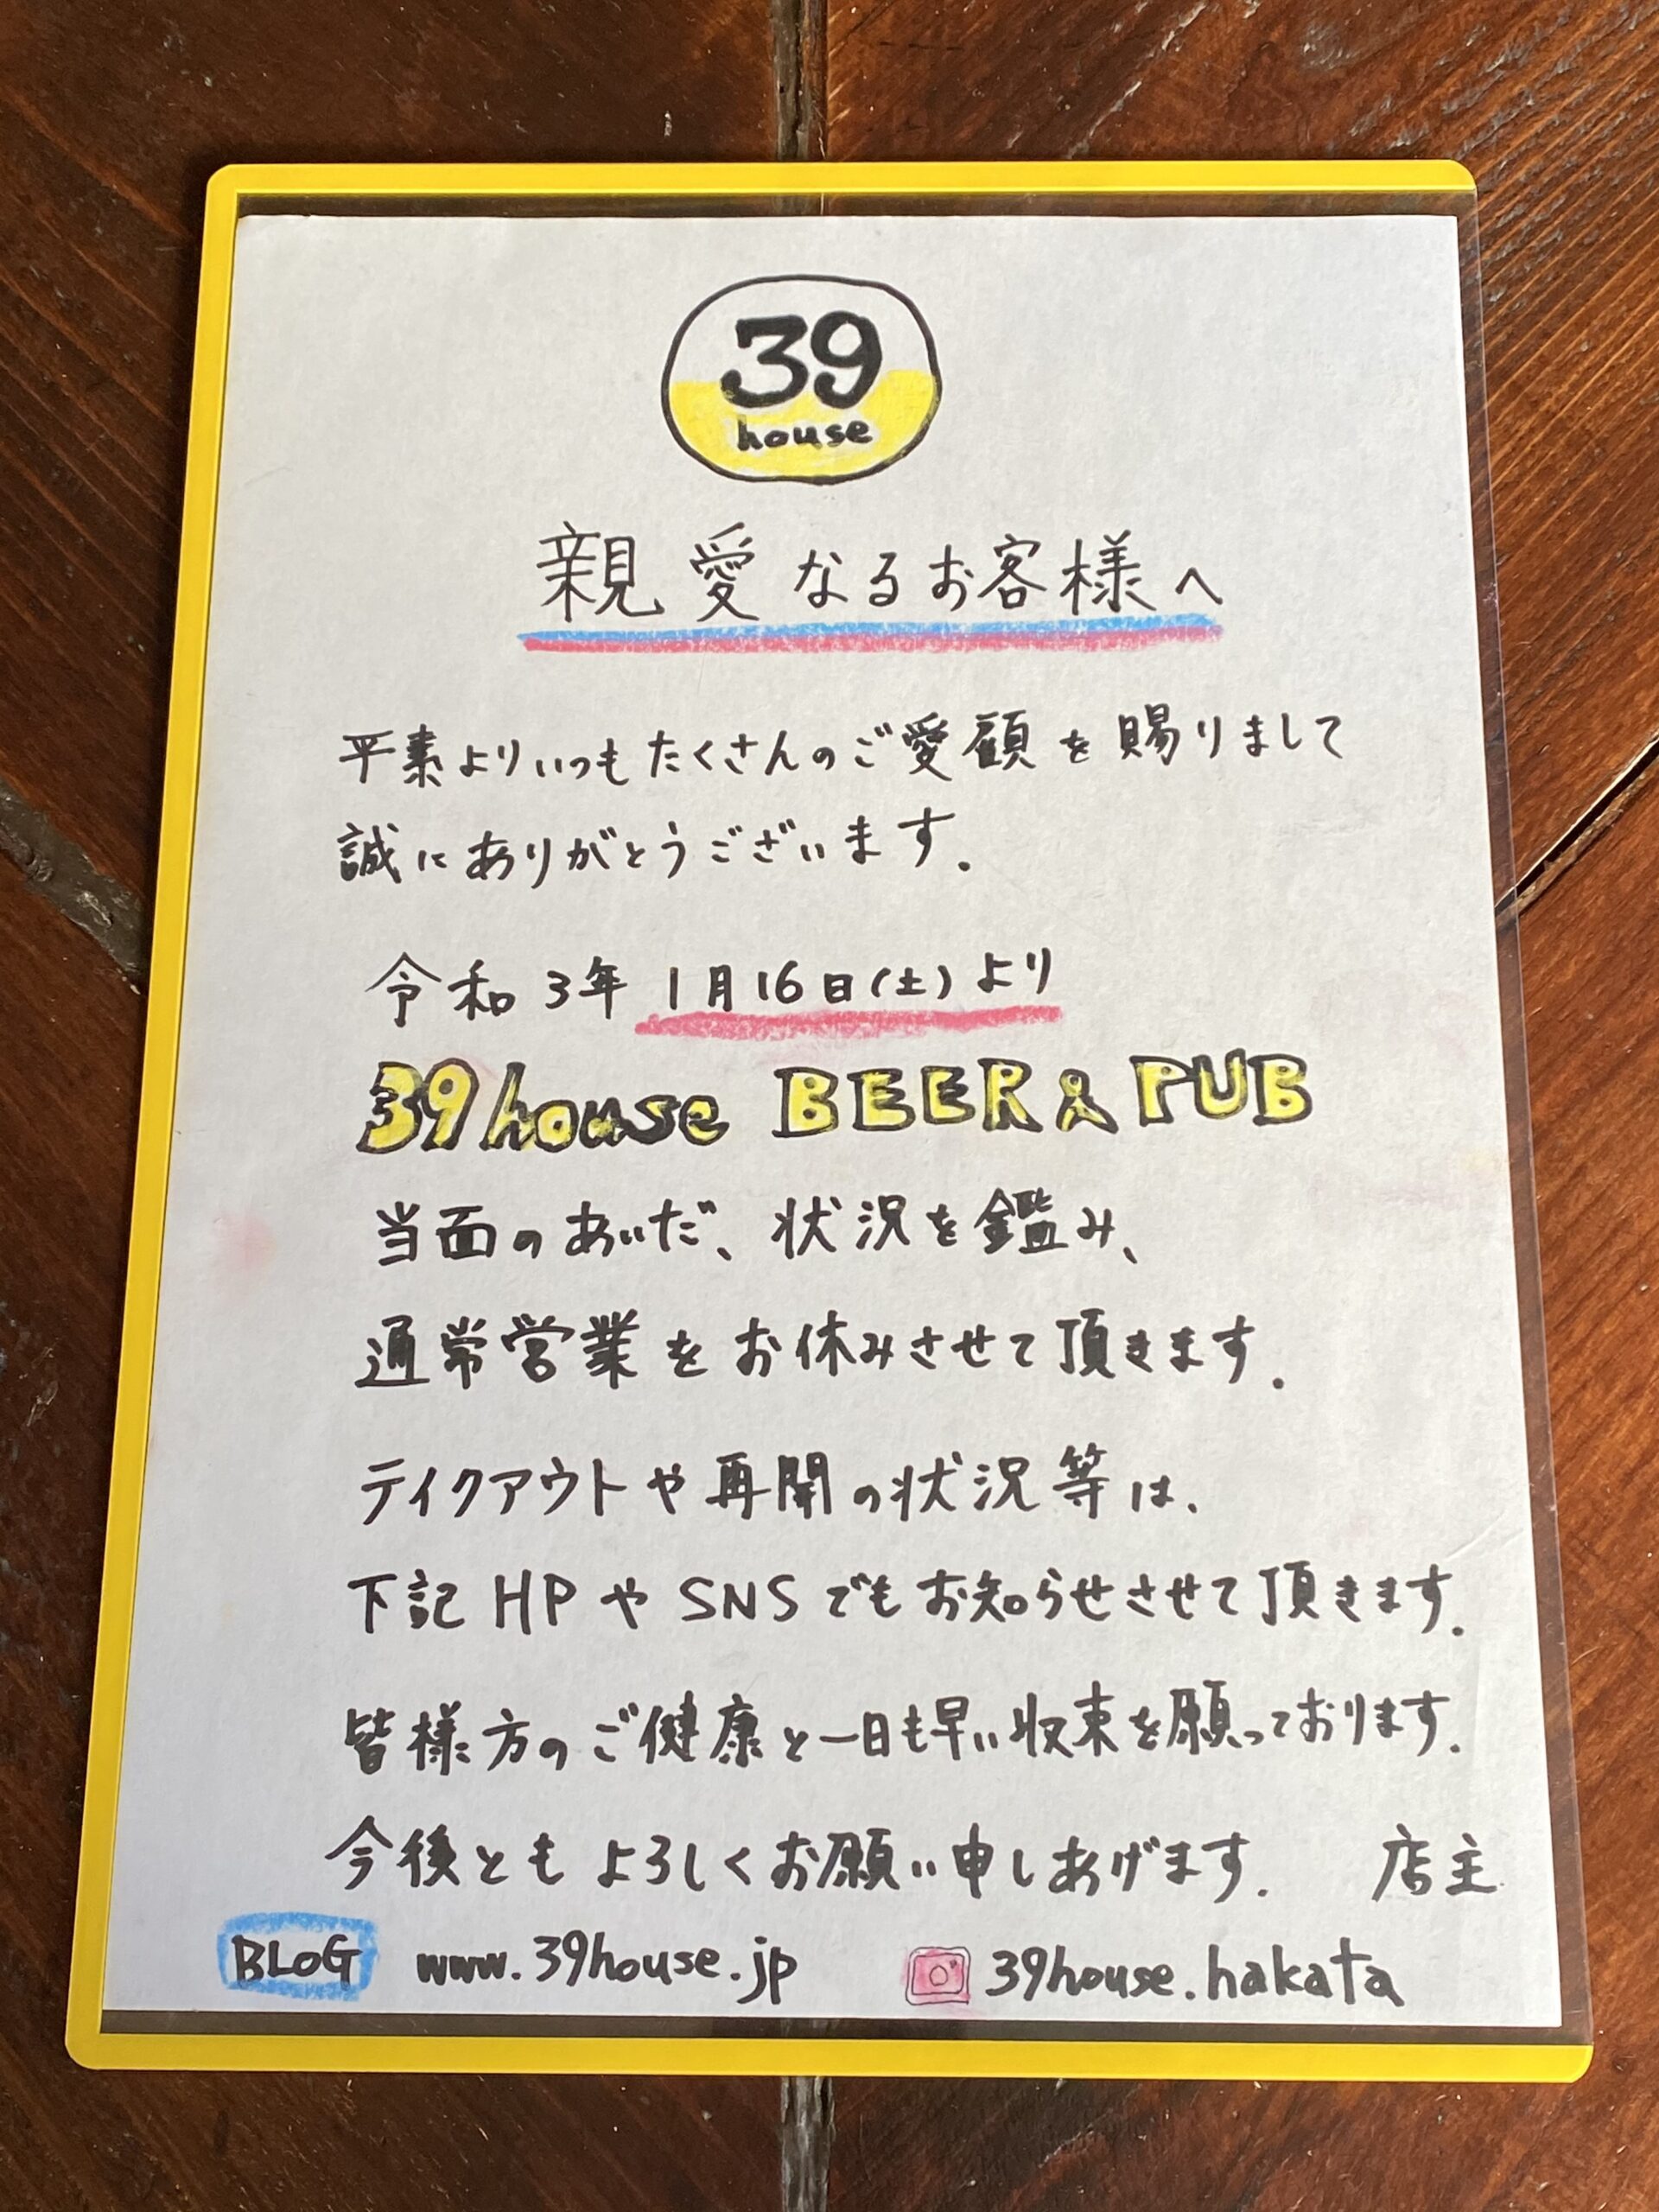 39
house
親愛なるお客様へ
平素よりいつもたくさんのご愛顧を賜りまして
誠にありがとうございます.
令和3年 1月16日(土)より
39house BEER&PUB
当面のあいだ、状況を鑑み、
通常営業をお休みさせて頂きます.
テイクアウトや再開の状況等は、
下記HPやSNSでもお知らせさせて頂きます.
皆様方のご健康と一日も早い収束を願っております.
今後ともよろしくお願い申しあげます. 店主
BLOG www.39house.jp 39house.hakata